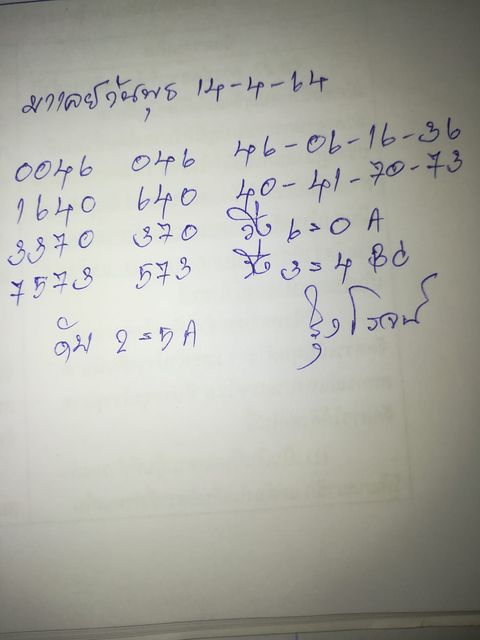 มาเลย์วันพุธ 14-4-64
0046 046 46-06-16-36
1640 640 40-41-70-73
3370 370 วิ่ง 6=0 A
7573 573 วิ่ง 3=4 BC
ดับ 2=5 A